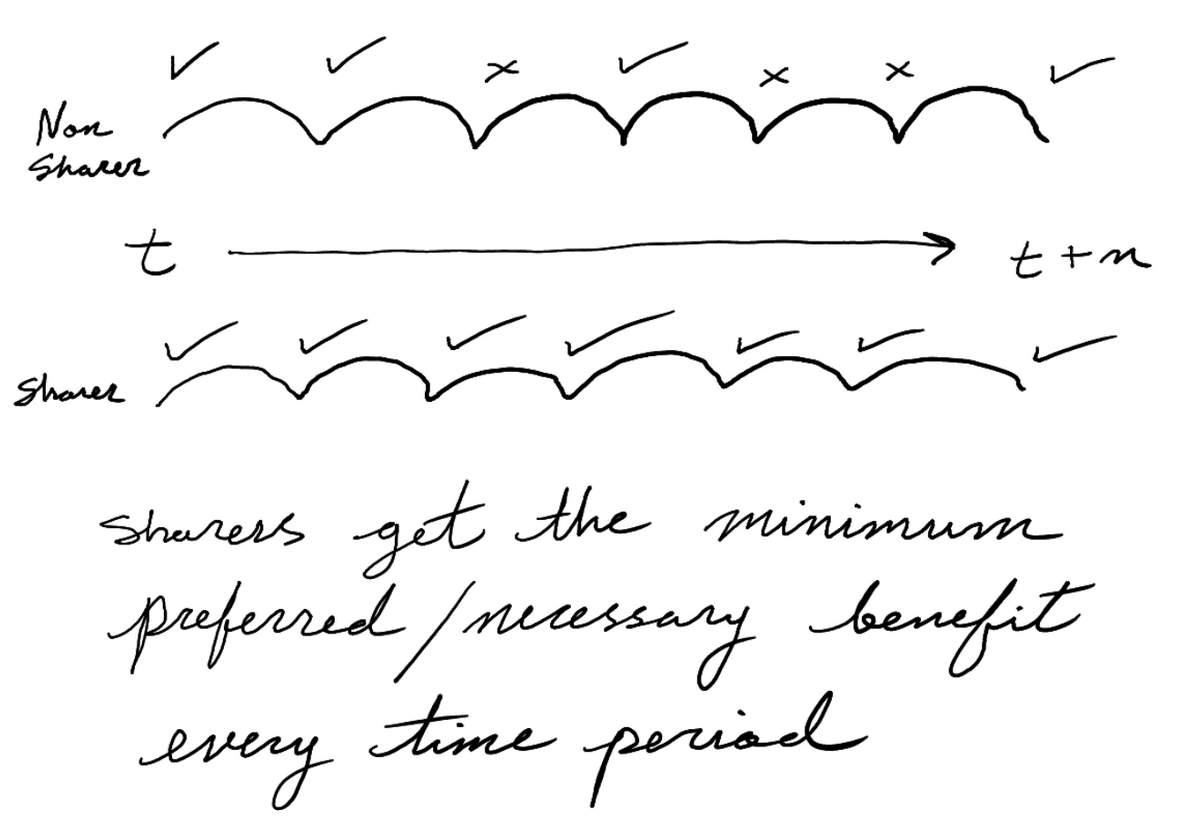 ✓ ✓ x ✓ x x ✓
Non
Sharer
t → t + n
✓ ✓ ✓ ✓ ✓ ✓ ✓
Sharer
Sharers get the minimum
preferred/necessary benefit
every time period